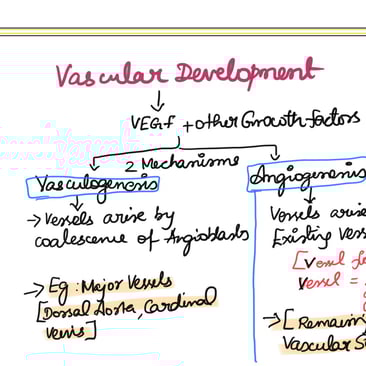 Vascular Development
VEGF + other Growth factors
2 Mechanisms
Vasculogenesis
→ Vessels arise by
coalescence of Angioblasts
→ Eg : Major Vessels
[Dorsal Aorta, Cardinal
veins]
Angiogenesis
Vessels arise
Existing Vess
[Vessel
Vessel =
→ [Remain
Vascular S